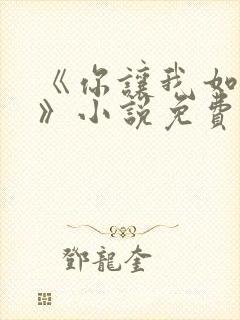 《你讓我如
》小說免費
鄧龍奎